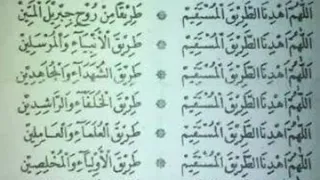 اَللّٰهُمَّ اهْدِنَا الطَّرِيْقَ الْمُسْتَقِيْمَ ۞ طَرِيْقًا مِنْ رُوْحِ جِبْرِيْلَ الْاَمِيْنَ
اَللّٰهُمَّ اهْدِنَا الطَّرِيْقَ الْمُسْتَقِيْمَ ۞ طَرِيْقَ الْاَنْبِيَآءِ وَالْمُرْسَلِيْنَ
اَللّٰهُمَّ اهْدِنَا الطَّرِيْقَ الْمُسْتَقِيْمَ ۞ طَرِيْقَ الشُّهَدَآءِ وَالْمُجَاهِدِيْنَ
اَللّٰهُمَّ اهْدِنَا الطَّرِيْقَ الْمُسْتَقِيْمَ ۞ طَرِيْقَ الْخُلَفَآءِ وَالرَّاشِدِيْنَ
اَللّٰهُمَّ اهْدِنَا الطَّرِيْقَ الْمُسْتَقِيْمَ ۞ طَرِيْقَ الْعُلَمَآءِ وَالْعَامِلِيْنَ
اَللّٰهُمَّ اهْدِنَا الطَّرِيْقَ الْمُسْتَقِيْمَ ۞ طَرِيْقَ الْاَوْلِيَآءِ وَالْمُخْلِصِيْنَ